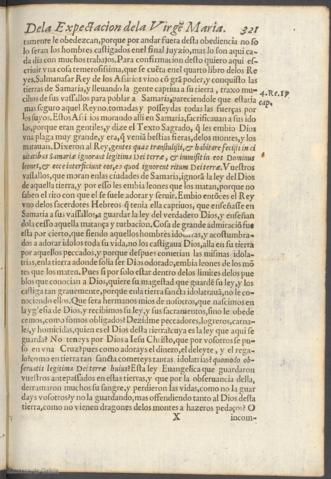 Dela Expectacion dela Virgē Maria. 321
tamente le obedezcan, porque por andar fuera desta obediencia no so
lo seran los hombres castigados enel final juyzio, mas lo son aqui ca-
da dia con muchos trabajos. Para confirmacion desto quiero aqui es-
criuir vna cosa temerosissima, que se cuēta enel quarto libro delos Re
yes, Salmanasar Rey de los Asirios vino cō grā poder, y conquisto las
tierras de Samaria, y lleuando la gente captiua a su tierra, traxo mu-
chos de sus vassallos para poblar a Samaria, pareciendole que estaria
mas seguro aquel Reyno, tomadas y posseydas todas las fuerças por
los suyos. Estos Asirios morando alli en Samaria, sacrificauan a sus ido
los, porque eran gentiles, y dize el Texto Sagrado, q̄ les embio Dios
vna plaga muy grande, y era, q̄ veniā bestias fieras, delos montes, y los
matauan. Dixeron al Rey, gentes quas transtulisti, & habitare fecisti in ci
uitatibus Samariæ ignorant legitima Dei terræ, & immisit in eos Dominus
leones, & ecce interficiunt eos, eo quod ignorent ritum Dei terræ. Vuestros
vassallos, que moran enlas ciudades de Samaria, ignorā la ley del Dios
de aquella tierra, y por esso les embia leones que los matan, porque no
saben el rito con que el se suele adorar y seruir. Embio entōces el Rey
vno delos sacerdotes Hebreos q̄ tenia ella captiuos, que enseñasse en
Samaria a sus vassallos, a guardar la ley del verdadero Dios, y enseñan
dola cesso aquella matança y turbacion. Cosa de grande admiraciō fue
esta por cierto, que siendo aquellos hombres idolatras, y acostumbra-
dos a adorar idolos toda su vida, no los castigaua Dios, alla en su tierra
por aquellos peccados, y porque despues comenten las mismas idola-
trias, enla tierra adonde solia ser Dios odorado, embia leones de los mō
tes que los maten. Pues si por solo estar dentro delos limites delos pue
blos que conocian a Dios, quiere su magestad que guardē su ley, y los
castiga tan grauemente, porque enla tierra sancta idolatrauā, no le co-
nociendo ellos. Que sera hermanos mios de nosotros, que nascimos en
la yglesia de Dios, y recibimos su ley, y sus sacramentos, sino le obede
cemos, como somos obligados? Dezidme peccadores, logreros, carna-
les, y homicidas, quien es el Dios desta tierra? cuya es la ley que aqui se
guarda? No teneys por Dios a Iesu Christo, que por vosotros se pu-
so en vna Cruz? pues como adorays el dinero, el deleyte, y el rega-
lo? como en tierra tan sancta cometeys tantas idolatrias? quomodo ob-
seruatis legitima Dei terræ huius? Esta ley Euangelica que guardaron
vuestros antepassados en estas tierras, y que por la obseruancia della,
derramaron muchos su sangre, y perdieron las vidas, como no la guar
days vosotros? y no la guardando, mas offendiendo tanto al Dios desta
tierra, como no vienen dragones delos montes a hazeros pedaços? O
X incom-
4. Re. 17
cap.